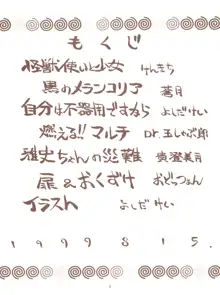 もくじ
怪獣使いと少女 けんきち
黒のメランコリア 蒼月
自分は不器用ですから よしだけい
燃える!!マルチ Dr.玉しゃぶ郎
雅史ちゃんの災難 貴澄美月
扉&おくずけ おどっつぉん
イラスト よしだけい
1999 8 15.